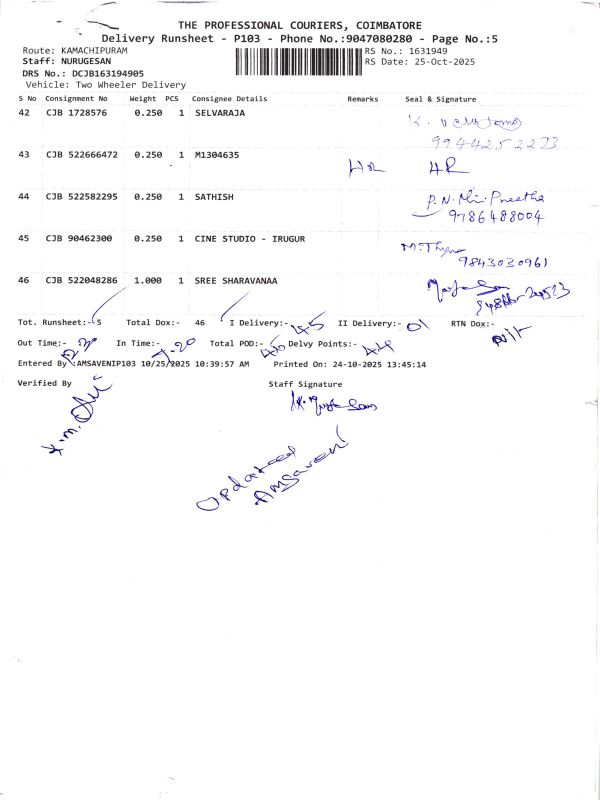 THE PROFESSIONAL COURIERS, COIMBATORE
Delivery Runsheet - P103 - Phone No.:9047080280 - Page No.:5
Route: KAMACHIPURAM RS No.: 1631949
Staff: NURUGESAN RS Date: 25-Oct-2025
DRS No.: DCJB163194905
Vehicle: Two Wheeler Delivery
S No Consignment No Weight PCS Consignee Details Remarks Seal & Signature
42 CJB 1728576 0.250 1 SELVARAJA
9944252273
43 CJB 522666472 0.250 1 M1304635 HR HR
44 CJB 522582295 0.250 1 SATHISH P.N. Mini Preetha
9786488004
45 CJB 90462300 0.250 1 CINE STUDIO - IRUGUR
9843030961
46 CJB 522048286 1.000 1 SREE SHARAVANAA
Tot. Runsheet:- 5 Total Dox:- 46 I Delivery:- 45 II Delivery:- 01 RTN Dox:- Nil
Out Time:- In Time:- 7.20 Total POD:- 46 Delvy Points:- 44
Entered By :AMSAVENIP103 10/25/2025 10:39:57 AM Printed On: 24-10-2025 13:45:14
Verified By Staff Signature
Updated
Amsaveni